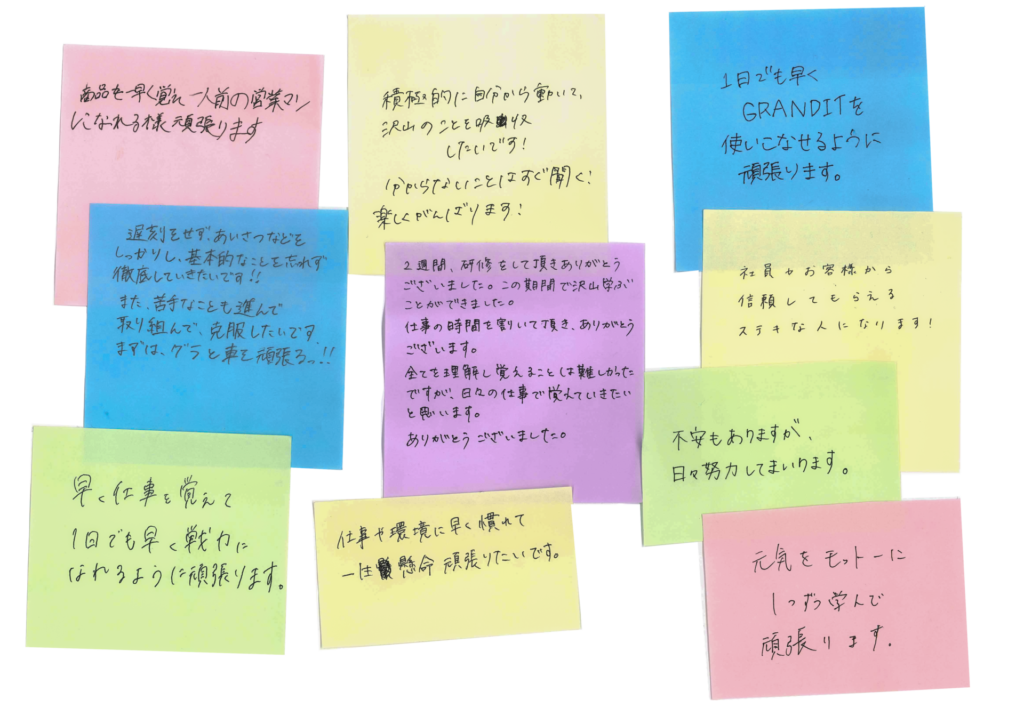 商品を早く覚え一人前の営業マン
になれる様頑張ります
積極的に自分から動いて、
沢山のことを吸収
したいです!
分からないことはすぐ聞く!
楽しくがんばります!
1日でも早く
GRANDITを
使いこなせるように
頑張ります。
遅刻をせず、あいさつなどを
しっかりし、基本的なことを忘れず
徹底していきたいです!!
また、苦手なことも進んで
取り組んで、克服したいです。
まずは、グラと車を頑張るっ!!
2週間、研修をして頂きありがとう
ございました。この期間で沢山学ぶ
ことができました。
仕事の時間を割いて頂き、ありがとう
ございます。
全てを理解し覚えることは難しかった
ですが、日々の仕事で覚えていきたい
と思います。
ありがとうございました。
社員やお客様から
信頼してもらえる
ステキな人になります!
不安もありますが、
日々努力してまいります。
早く仕事を覚えて
1日でも早く戦力に
なれるように頑張ります。
仕事や環境に早く慣れて
一生懸命頑張りたいです。
元気をモットーに
1つずつ学んで
頑張ります。